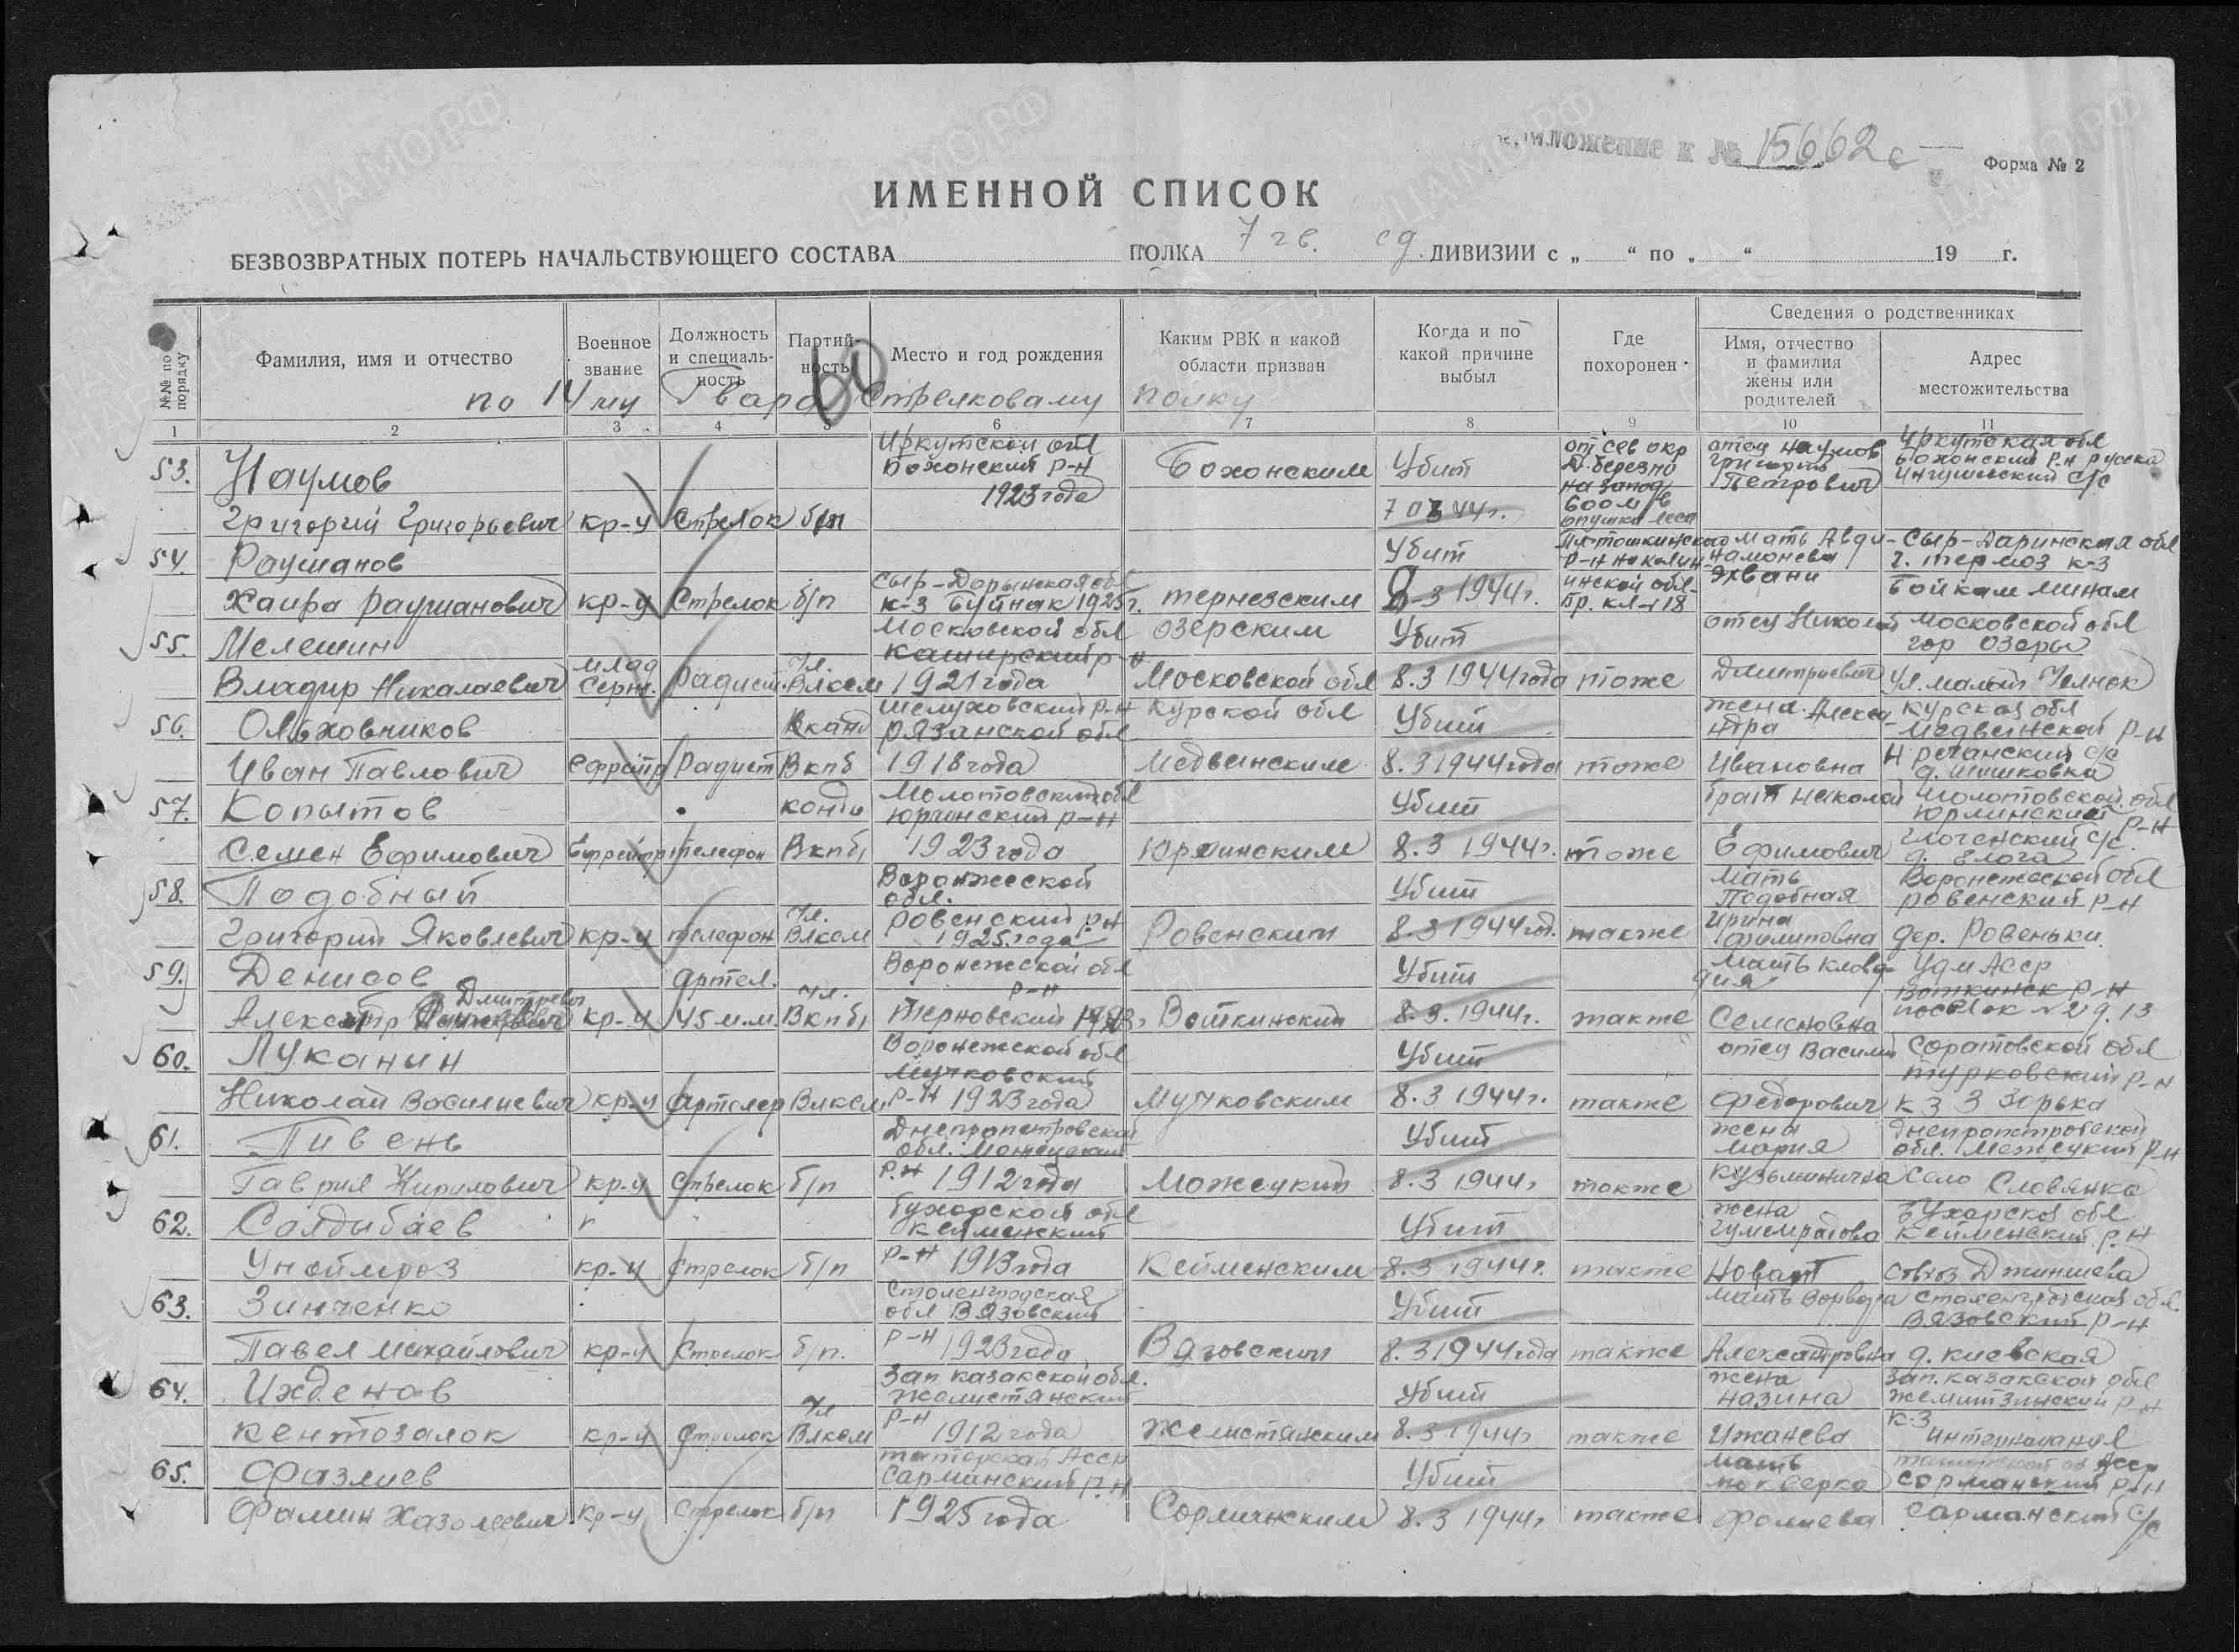 Приложение к № 15662с
Форма № 2
ИМЕННОЙ СПИСОК
БЕЗВОЗВРАТНЫХ ПОТЕРЬ НАЧАЛЬСТВУЮЩЕГО СОСТАВА ПОЛКА 7 гв. сд. ДИВИЗИИ с „ “ по „ “ 19 г.
№№ по порядку
Фамилия, имя и отчество
Военное звание
Должность и специальность
Партийность
Место и год рождения
Каким РВК и какой области призван
Когда и по какой причине выбыл
Где похоронен
Сведения о родственниках
Имя, отчество и фамилия жены или родителей
Адрес местожительства
60
по 14 му Гвард Стрелковому полку
1 2 3 4 5 6 7 8 9 10 11
53. Наумов Григорий Григорьевич кр-ц Стрелок б/п
Иркутской обл Боханский р-н 1923 года
Боханским Убит 7 03 44г.
от сев окр д. березно на запод 600 м/в опушка леса
отец Наумов Григорий Петрович
Иркутская обл Боханский р-н
54. Раушанов Хаира Раушанович кр-ц Стрелок б/п
Сыр-Дарьинская обл к-з Буйнак 1925г.
Убит 8-3 1944г.
Сыр-Даринская обл
55. Мелешин Владир Николаевич млад Серж. радист. Чл. Влксм
Московской обл Каширский р-н 1921 года
Озерским Московской обл
Убит 8.3 1944 года тоже
отец Николай Дмитриевич
Московской обл гор Озеры
56. Ольховников Иван Павлович Ефрейтр Радист Канд Вкпб
Шелуховский р-н Рязанской обл 1918 года
Курской обл Медвенским
Убит 8.3 1944 года тоже
жена Александра Ивановна
Курская обл Медвенской р-н
д. Шишковка
57. Копытов Семен Ефимович Ефрейтр телефон Вкпб
Молотовский обл Юрлинский р-н 1923 года
Юрлинским Убит 8.3 1944г. тоже
брат Николай Ефимович
Молотовской обл Юрлинский р-н
58. Подобный Григорий Яковлевич кр-ц телефон Чл. Влксм
Воронжеской обл. Ровенский р-н 1925 года
Ровенским Убит 8.3 1944 год. также
мать Подобная Ирина Филиповна
Воронежской обл Ровенский р-н дер. Ровеньки
59. Денисов Александр Дмитревич кр-ц артел. 45 м.м. Чл. Вкпб
Воронежской обл р-н Терновский
Воткинский Убит 8.3. 1944г. также
мать Клавдия Семеновна
Удм Асср Воткинск р-н
60. Луканин Николай Василиевич кр-ц артелер Влксм
Воронежской обл Мучковский р-н 1923 года
Мучковским Убит 8.3 1944г. также
отец Василий Федорович
Соратовской обл Турковский р-н к-з Зорька
61. Пивень Гаврил Кирилович кр-ц Стрелок б/п
Днепропетровской обл. р-н 1912 года
Можецкий Убит 8.3 1944г также
жена Мария Кузьминична
Днепропетровской обл. Межецкий р-н село Словянка
62. Солдыбаев кр-ц Стрелок б/п
Бухорской обл Кейменский р-н 1913 года
Кейменским Убит 8.3 1944г. также
жена
Бухорской обл Кейменский р-н совхоз
63. Зинченко Павел Михайлович кр-ц Стрелок б/п.
Сталенгродская обл Вязовский р-н 1923 года
Вязовским Убит 8.3 1944 года также
мать Варвара Александровна
Сталенгродская обл. Вязовский р-н д. Киевская
64. Ижденов кр-ц Стрелок Чл Влксм
Зап. казакской обл. р-н 1912 года
Жемистянским Убит 8.3 1944г также
жена Назина Ижанева
Зап. казакской обл р-н к-з
65. Фазлиев Фамин кр-ц Стрелок б/п
Татарская Асср Сарманский р-н 1925 года
Убит 8.3 1944г также
мать
Сарманский р-н Сарманский с/с